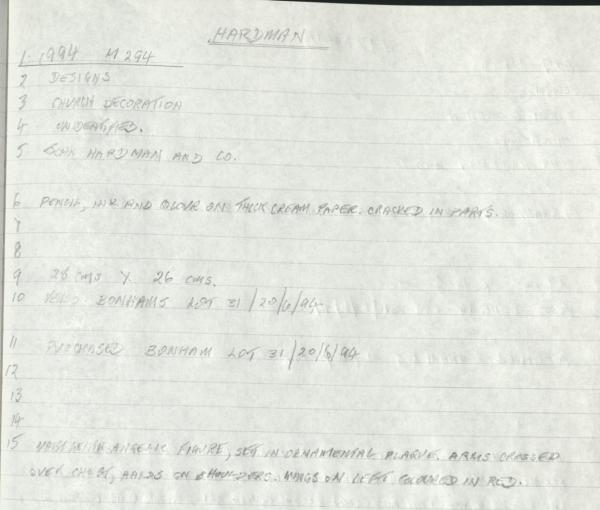 HARDMAN
1. 1994 H 294
2 DESIGNS
3 CHURCH DECORATION
4 UNIDENTIFIED.
5 JOHN HARDMAN AND CO.
6 PENCIL, INK AND COLOUR ON THICK CREAM PAPER. CRACKED IN PARTS.
7
8
9 28 CMS X 26 CMS.
10 BONHAMS LOT 31/20/6/94
11 PURCHASED BONHAM LOT 31/20/6/94
12
13
14
15 ANGELIC FIGURE, SET IN ORNAMENTAL PLAQUE. ARMS CROSSED
OVER CHEST, HANDS ON SHOULDERS. WINGS ON LEFT COLOURED IN RED.